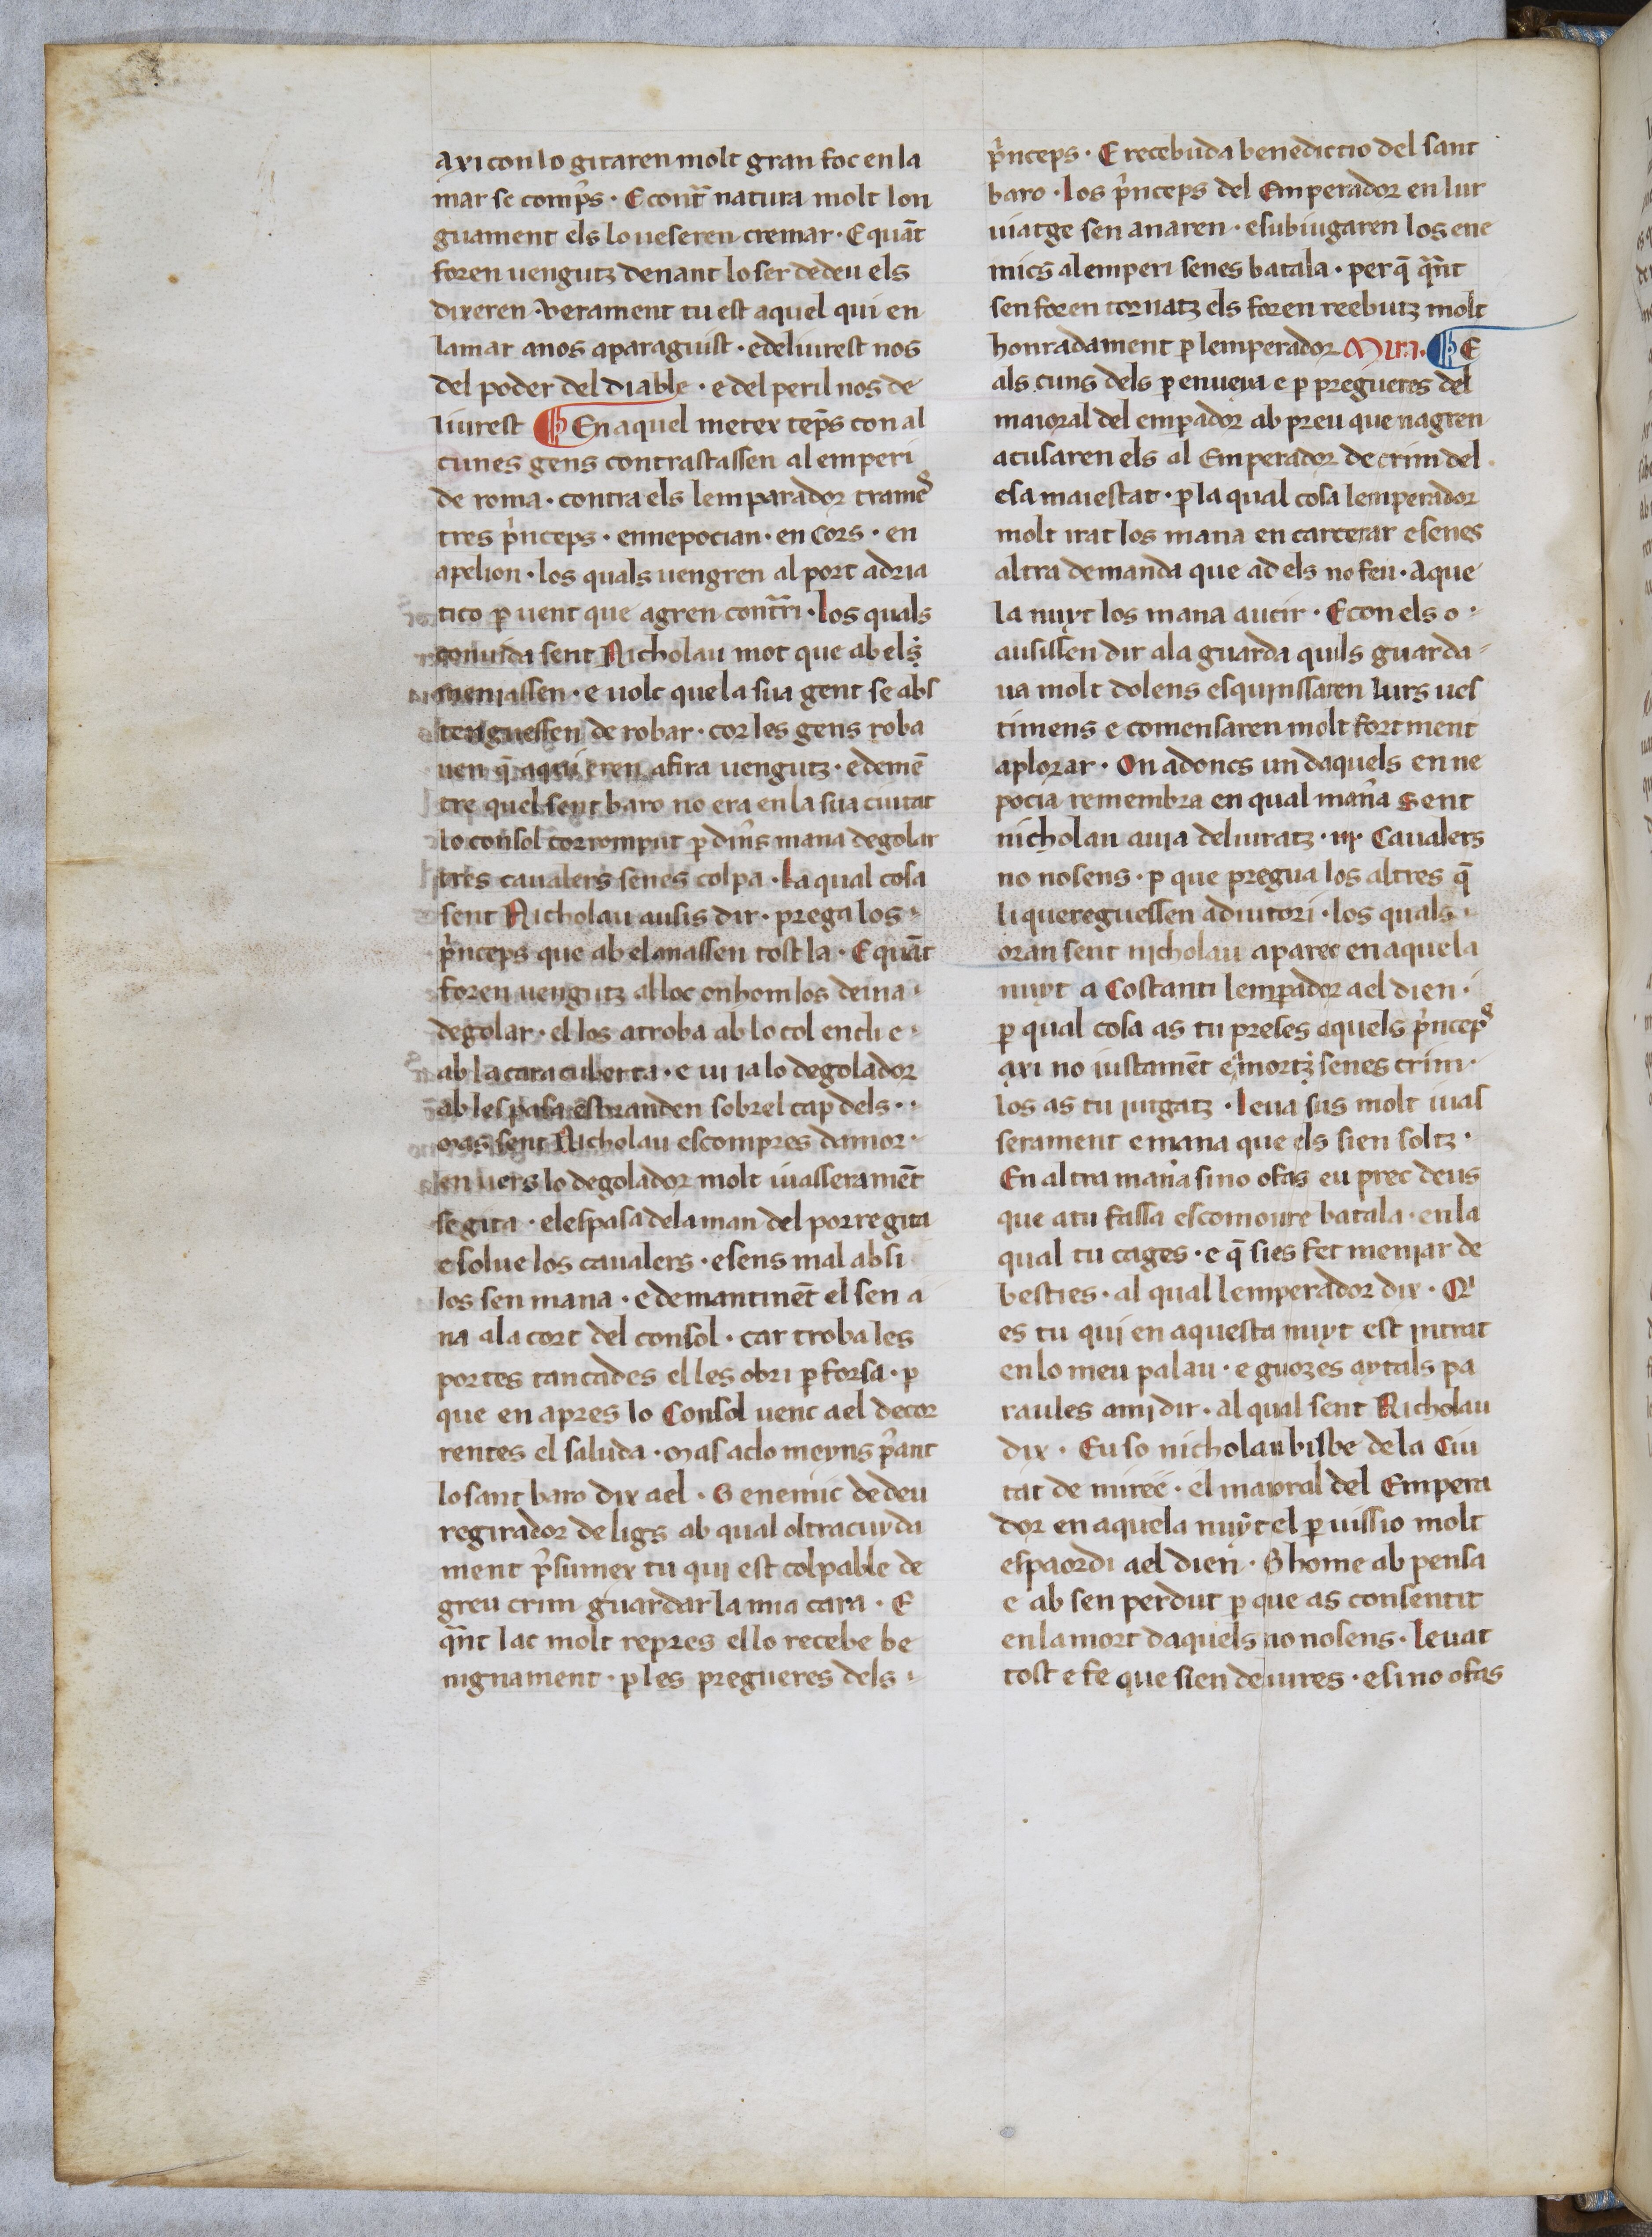 axi con lo gitaren molt gran foc en la
mar se comp̃s · E cont̃ natura molt lon
guament els lo ueseren cremar · E quãt
foren uengutz denant lo ser de deu els
dixeren · verament tu est aquel qui en
la mar a nos aparaguist · e deliurest nos
del poder del diable · e del peril nos de
liurest ¶ En aquel metex tep̃s con al
cunes gens contrastassen al emperi
de roma · contra els lemparador trameᷤ
tres p̃nceps · en nepocian · en Cors · en
apelion · los quals uengren al port adria
tico ꝑ uent que agren cont̃ri · Los quals
conuida sent Nicholau mot que ab els
meniassen · e uolt que la sua gent se abs
tenguessen de robar · cor les gens roba
uen q̃ aqui eren a fira uengutz · e demẽ
tre quel sent baro no era en la sua ciutat
lo consol corromput ꝑ din̉s mana degolar
tres caualers senes colpa · La qual cosa
sent Nicholau ausis dir · prega los
p̃nceps que ab el anassen tost la · E quãt
foren uengutz al loc on hom los deuia
degolar · el los atroba ab lo col encli e
ab la cara cuberta · e uija lo degolador
ab lespasa esbranden sobrel cap dels ·
Mas sent Nicholau escompres damor ·
en uers lo degolador molt iuasseramẽt
se gita · e lespasa de la man del por regita
e solue los caualers · e sens mal ab si
los sen mana · e de mantinẽt el sen a
na a la cort del consol · car troba les
portes tancades el les obri ꝑ forsa · ꝑ
que en apres lo Consol uenc a el decor
rentes el saluda · Mas aclo meyns p̃ant
lo sant baro dix a el · O enemic de deu
regirador de ligs ab qual oltracuyda
ment p̃sumex tu qui est colpable de
greu crim guardar la mia cara · E
q̃nt lac molt repres el lo recebe be
nignament · ꝑ les pregueres dels
p̃nceps · E recebuda benedictio del sant
baro · Los p̃nceps del Emperador en lur
uiatge sen anaren · e subiugaren los ene
mics al emperi senes batala · per q̃ q̃nt
sen foren tornatz els foren reebutz molt
honradament ꝑ lemperador ¶ E
als cuns dels ꝑ enueya e ꝑ pregueres del
maioral del emꝑador ab preu que nagren
acusaren els al Emperador de crim del
esa maiestat · ꝑ la qual cosa lemperador
molt irat los mana en carcerar e senes
altra demanda que ad els no feu · Aque
la nuyt los mana aucir · E con els o
ausissen dir a la guarda quils guarda
ua molt dolens esquinssaren lurs ues
timens e comensaren molt fortment
a plorar · On adoncs un daquels en ne
pocia remembra en qual mañia sent
nicholau auia deliuratz · iij · Caualers
no nosens · ꝑ que pregua los altres q̃
li quereguessen adiutori · los quals
oran sent nicholau aparec en aquela
nuyt a Costanti lemꝑador a el dien ·
ꝑ qual cosa as tu preses aquels p̃ncepᷤ
axi no iustamẽt e a mortz senes crim ·
los as tu iutgatz · leua sus molt iuas
serament e mana que els sien soltz ·
En altra mañia si no o fas eu prec deus
que a tu fassa escomoure batala · en la
qual tu cages · e q̃ sies fet meniar de
besties · al qual lemperador dix · Q̓
es tu qui en aquesta nuyt est intrat
en lo meu palau · e guozes aytals pa
raules a mi dir · al qual sent Nicholau
dix · Eu so nicholau bisbe de la Ciu
tat de miree · el maioral del Empera
dor en aquela nuyt el ꝑ uissio molt
espaordi a el dien · O home ab pensa
e ab sen perdut ꝑ que as consentit
en la mort daquels no nosens · leuat
tost e fe que sien deiures · e si no o fas